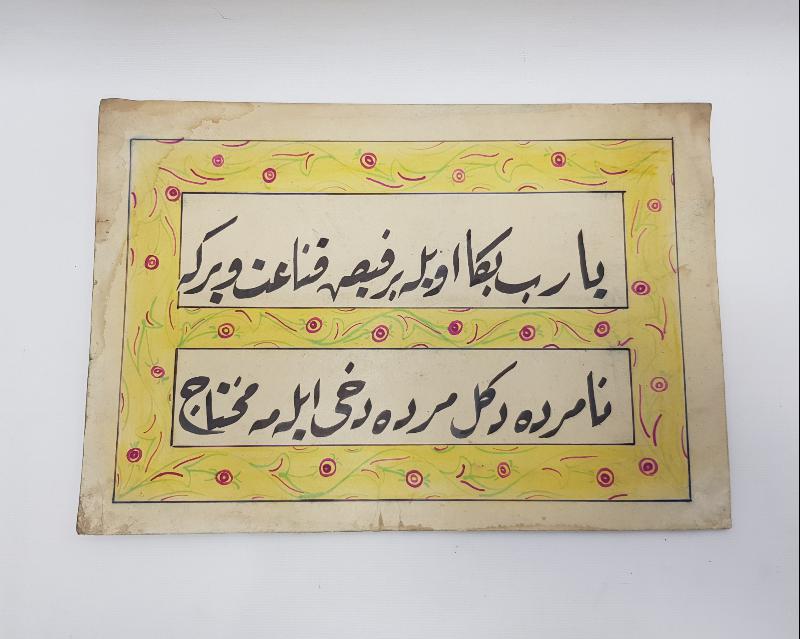 يا رب بكا اويله بر فيض قناعت ويركه
نامرده دكل مرده دخى ايله مه محتاج